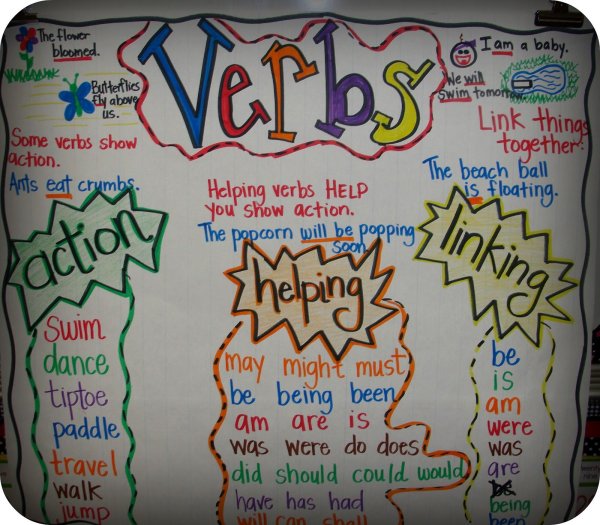 The flower
bloomed.
Butterflies
fly above
us.
Verbs
I am a baby.
We will
swim tomorrow
Some verbs show
action.
Ants eat crumbs.
Helping verbs HELP
you show action.
The popcorn will be popping
soon.
Link things
together.
The beach ball
is floating.
action
swim
dance
tiptoe
paddle
travel
walk
jump
helping
may might must
be being been
am are is
was were do does
did should could would
have has had
will can shall
linking
be
is
am
were
was
are
being
been